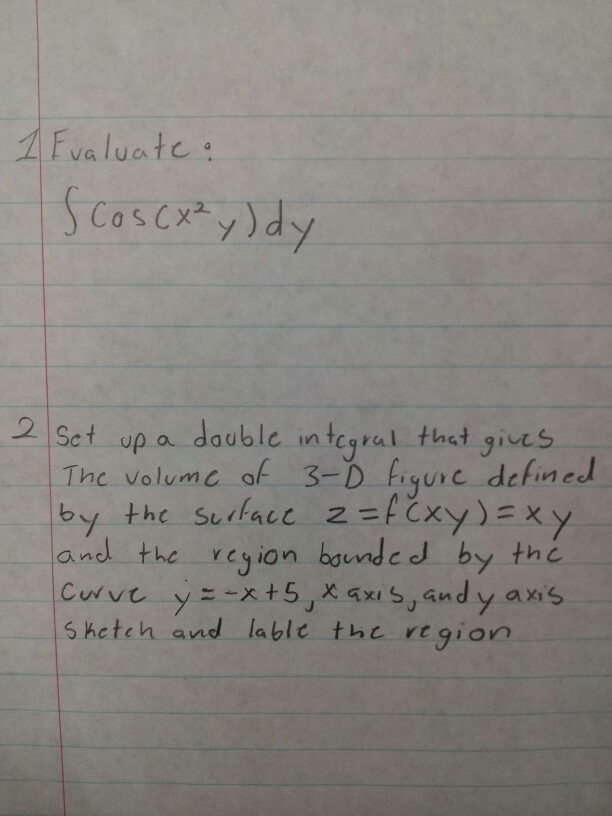 1 Evaluate:
∫ cos(x² y) dy
2 Set up a double integral that gives
The volume of 3-D figure defined
by the surface z = f(xy) = xy
and the region bounded by the
curve y = -x+5, x axis, and y axis
sketch and lable the region